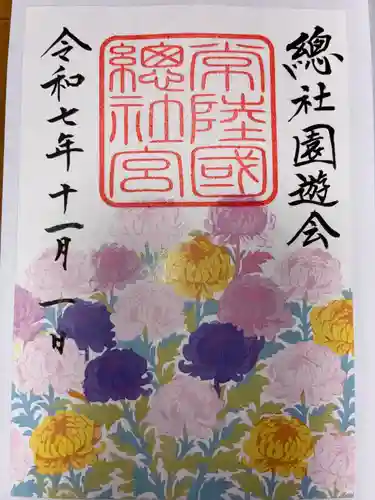 總社園遊会
常陸國
總社宮
令和七年十一月一日